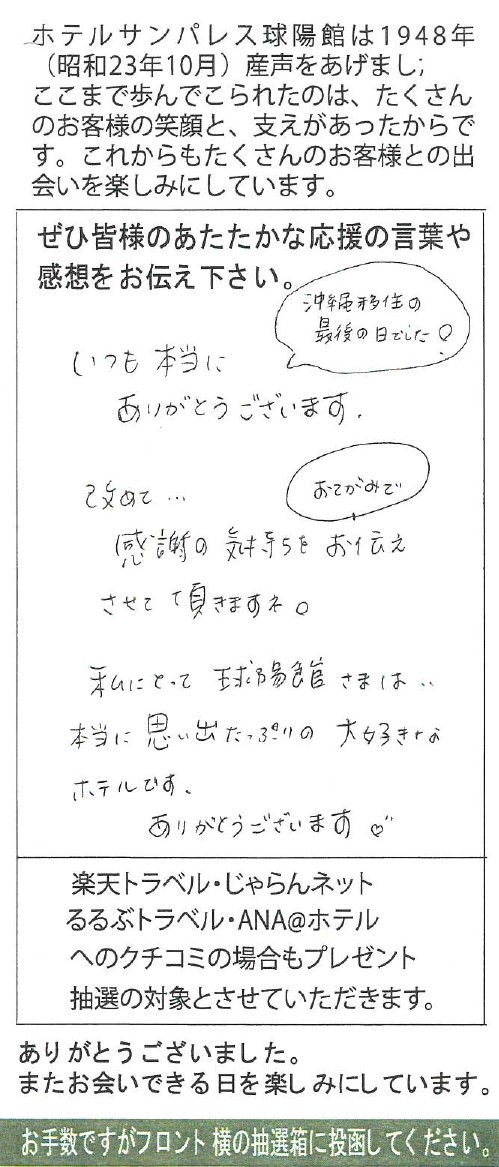 ホテルサンパレス球陽館は1948年
（昭和23年10月）産声をあげまし;
ここまで歩んでこられたのは、たくさん
のお客様の笑顔と、支えがあったからで
す。これからもたくさんのお客様との出
会いを楽しみにしています。
ぜひ皆様のあたたかな応援の言葉や
感想をお伝え下さい。
沖縄移住の
最後の日でした。
いつも本当に
ありがとうございます.
改めて…
おてがみで
感謝の気持ちを お伝え
させて頂きますネ。
私にとって 球陽館さまは..
本当に思い出たっぷりの 大好きな
ホテルです.
ありがとうございます♡
楽天トラベル・じゃらんネット
るるぶトラベル・ANA@ホテル
へのクチコミの場合もプレゼント
抽選の対象とさせていただきます。
ありがとうございました。
またお会いできる日を楽しみにしています。
お手数ですがフロント横の抽選箱に投函してください。